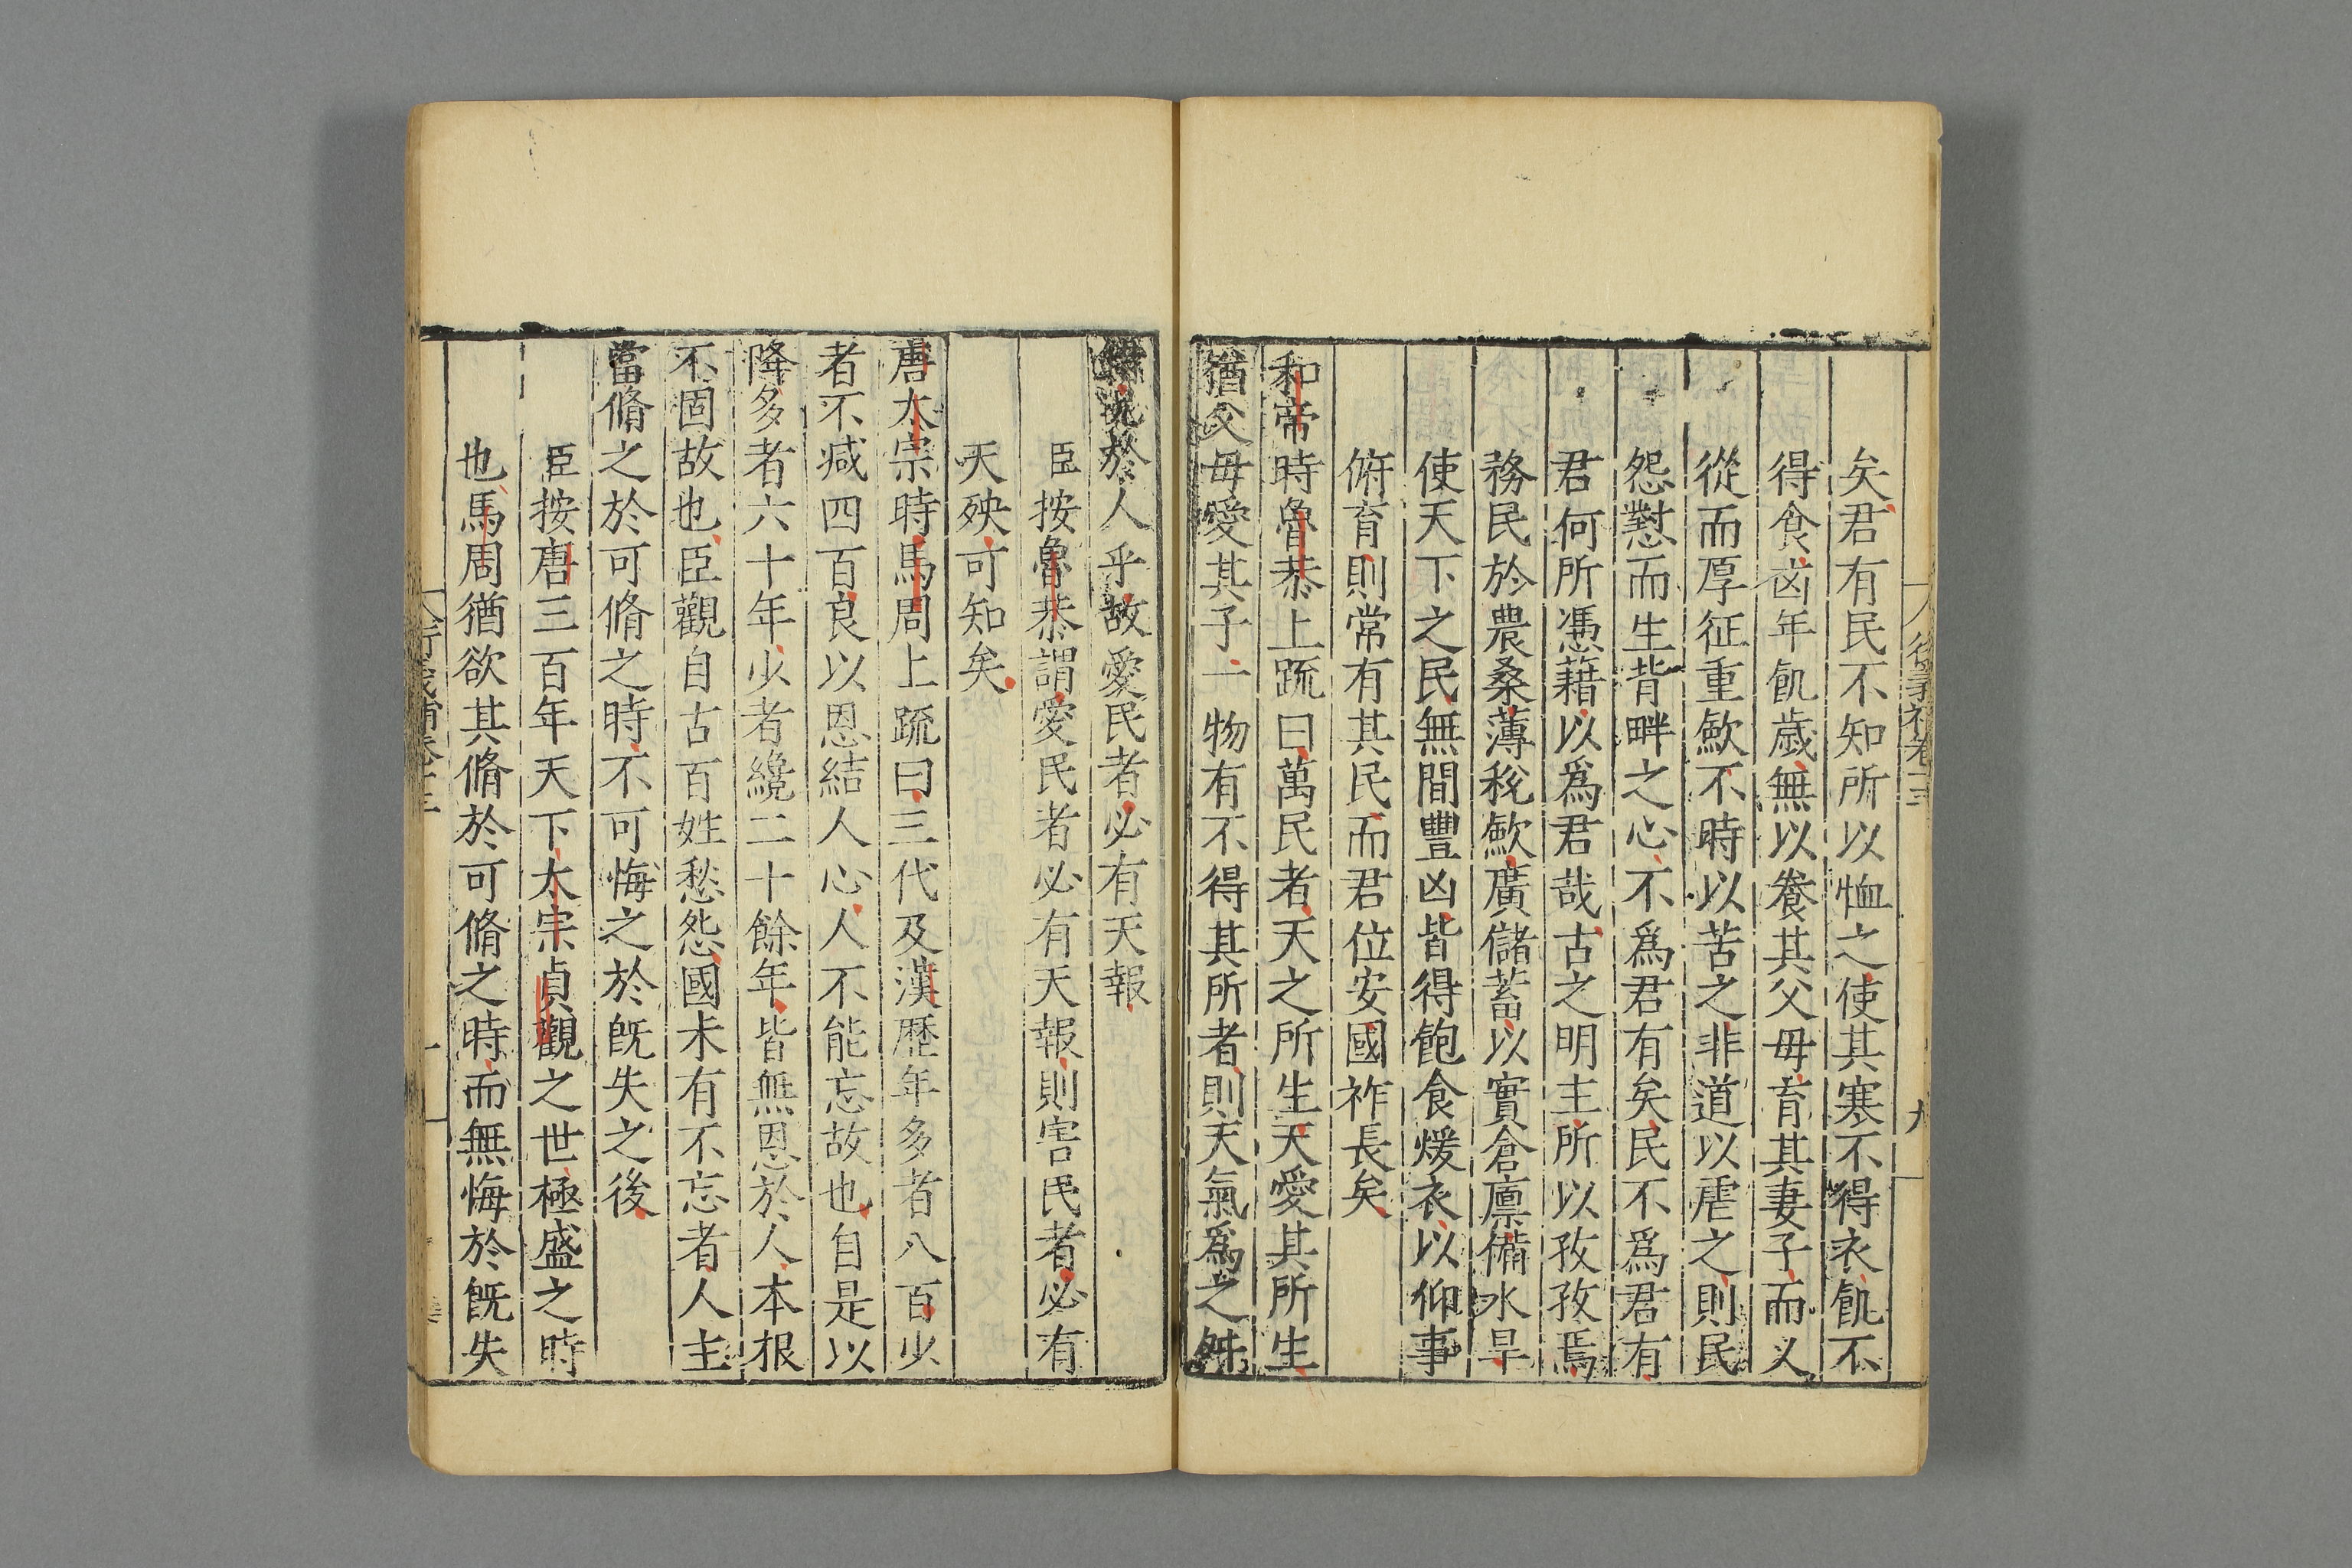 矣君有民不知所以恤之使其寒不得衣飢不
得食凶年飢歲無以養其父毋育其妻子而又
從而厚征重斂不時以苦之非道以虐之則民
怨懟而生背畔之心不為君有矣民不為君有
君何所憑藉以為君哉古之明主所以孜孜焉
務民於農桑薄稅斂廣儲蓄以實倉廩備水旱
使天下之民無間豐凶皆得飽食煖衣以仰事
俯育則常有其民而君位安國祚長矣
和帝時魯恭上䟽曰萬民者天之所生天愛其所生
猶父毋愛其子一物有不得其所者則天氣為之舛
況於人乎故愛民者必有天報
臣按魯恭謂愛民者必有天報則害民者必有
天殃可知矣
唐太宗時馬周上䟽曰三代及漢歷年多者八百少
者不减四百良以恩結人心人不能忘故也自是以
降多者六十年少者纔二十餘年皆無恩於人本根
不固故也臣觀自古百姓愁怨國未有不忘者人主
當脩之於可脩之時不可悔之於旣失之後
臣按唐三百年天下太宗貞觀之世極盛之時
也馬周猶欲其脩於可脩之時而無悔於旣失
衍義補卷十三
九